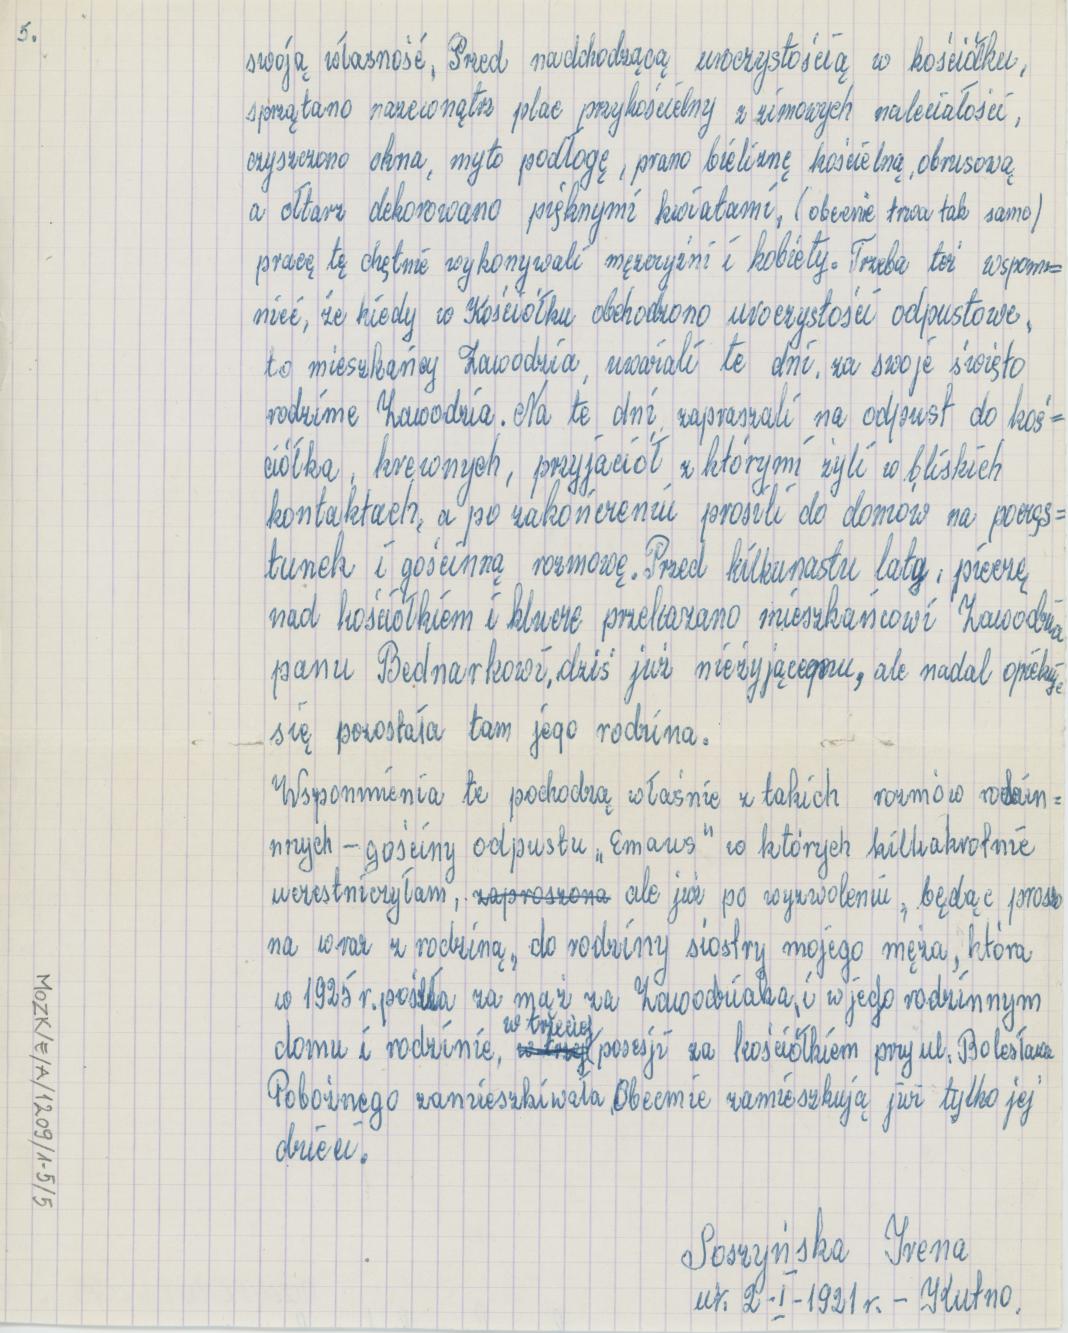 5.
swoją własność. Przed nadchodzącą uroczystością w kościółku,
sprzątano nazewnątrz plac przykościelny z zimowych naleciałości,
czyszczono okna, myto podłogę, prano bieliznę kościelną, obrusową
a ołtarz dekorowano pięknymi kwiatami, (obecnie trwa tak samo)
pracę tę chętnie wykonywali mężczyźni i kobiety. Trzeba też wspom=
nieć, że kiedy w Kościółku obchodzono uroczystości odpustowe,
to mieszkańcy Zawodzia, uważali te dni, za swoje święto
rodzime Zawodzia. Na te dni zapraszali na odpust do koś=
ciółka, krewnych, przyjaciół z którymi żyli w bliskich
kontaktach, a po zakończeniu prosili do domów na poczęs=
tunek i gościnną rozmowę. Przed kilkunastu laty, pieczę
nad kościółkiem i klucze przekazano mieszkańcowi Zawodzia
panu Bednarkowi, dziś już nieżyjącemu, ale nadal opiekuje
się pozostała tam jego rodzina.
Wspomnienia te pochodzą właśnie z takich rozmów rodzin=
nnych - gościny odpustu „Emaus" w których kilkakrotnie
uczestniczyłam, zaproszona ale już po wyzwoleniu, będąc proszo
na wraz z rodziną, do rodziny siostry mojego męża, która
w 1925 r. poszła za mąż za Zawodziaka, i w jego rodzinnym
domu i rodzinie, w trzeciej posesji za kościółkiem przy ul. Bolesława
Pobożnego zamieszkiwała. Obecnie zamieszkują już tylko jej
dzieci.
Soszyńska Irena
ur. 2-I-1921 r. - Kutno.
MoZK/E/A/1209/1-5/5